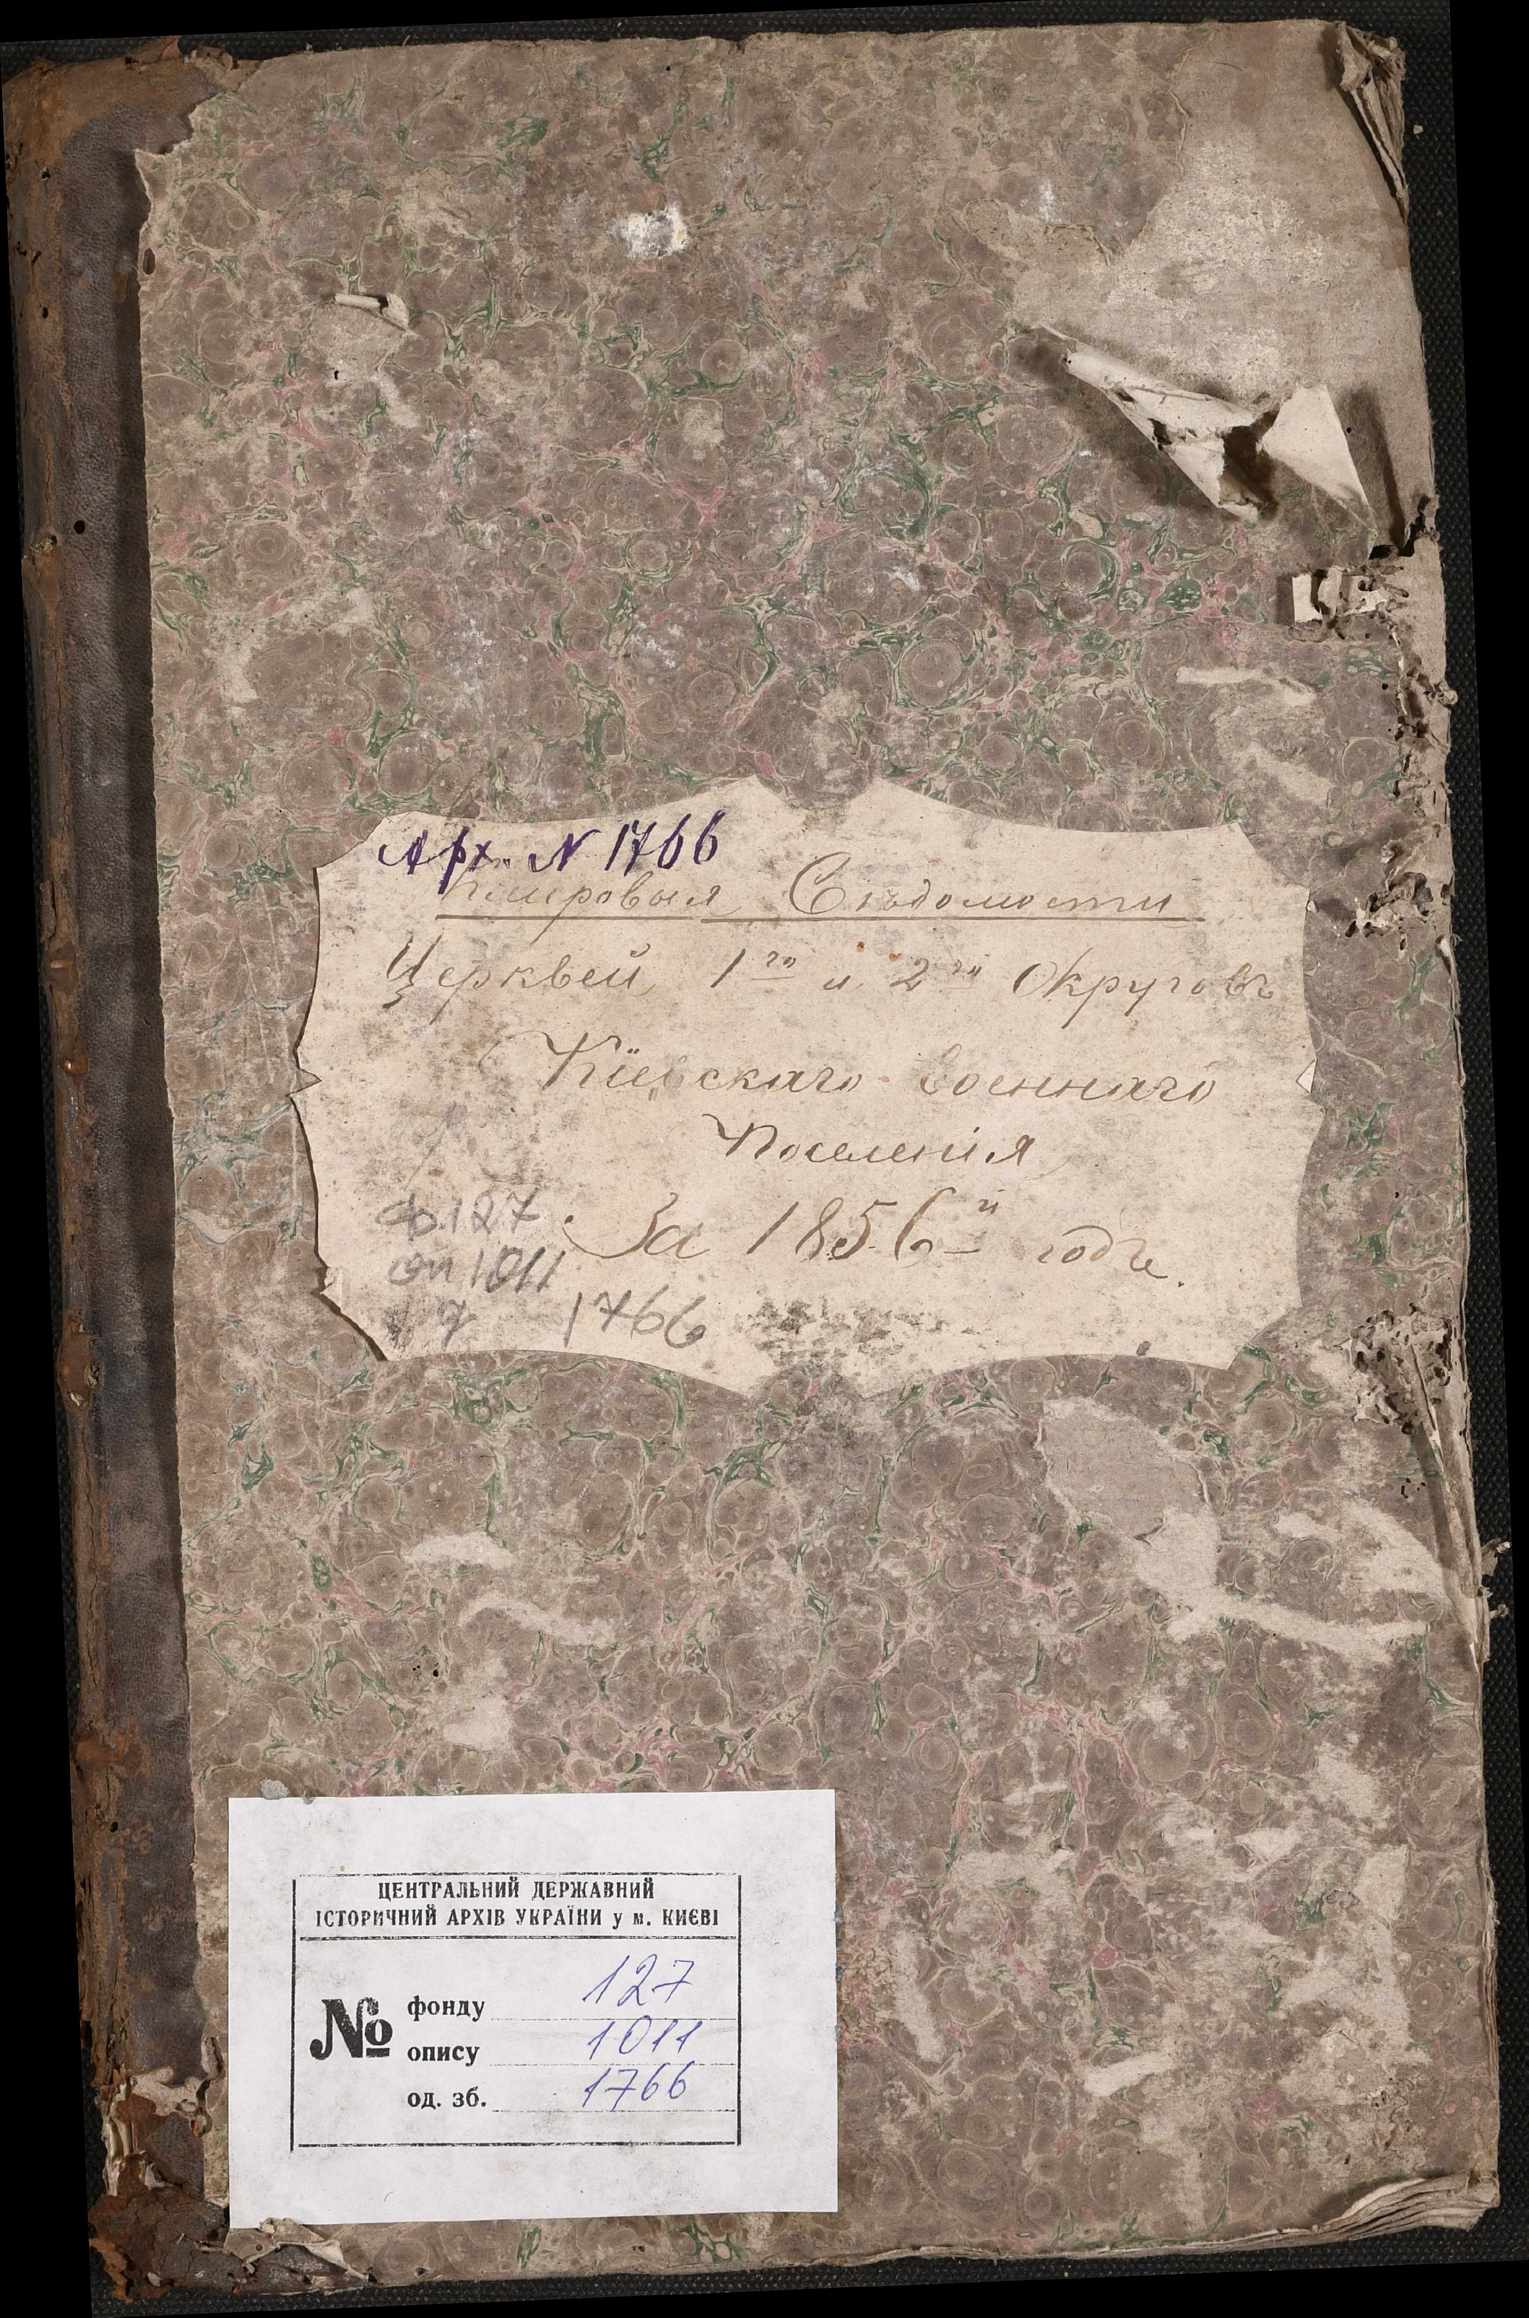 Арх. N 1766
Клировыя Вѣдомости
Церквей 1го и 2го Округовъ
Кіевскаго военнаго
Поселенія
За 1856й годъ.
ф. 127
оп 1011
1766
ЦЕНТРАЛЬНИЙ ДЕРЖАВНИЙ
ІСТОРИЧНИЙ АРХІВ УКРАЇНИ у м. КИЄВІ
№
фонду 127
опису 1011
од. зб. 1766